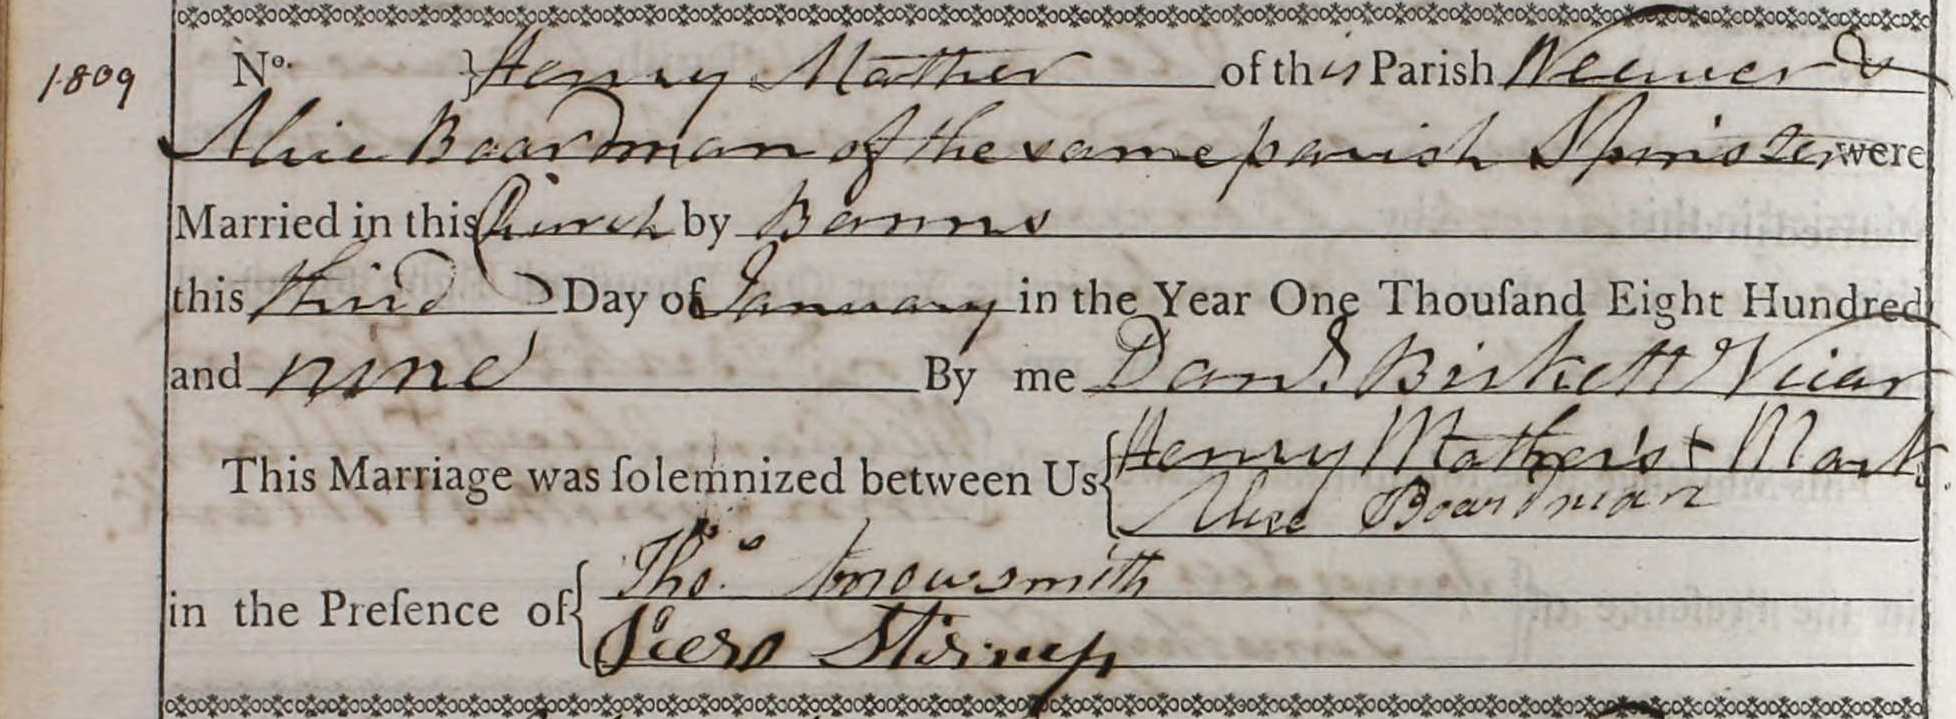 1809
No. } Henry Mather of this Parish Weaver &
Alice Boardman of the same parish Spinster were
Married in this Church by Banns
this third Day of January in the Year One Thouſand Eight Hundred
and nine By me Danl. Birkett Vicar
This Marriage was ſolemnized between Us { Henry Mather's + Mark
Alice Boardman
in the Preſence of { Thos. Arrowsmith
Peers Stirrup